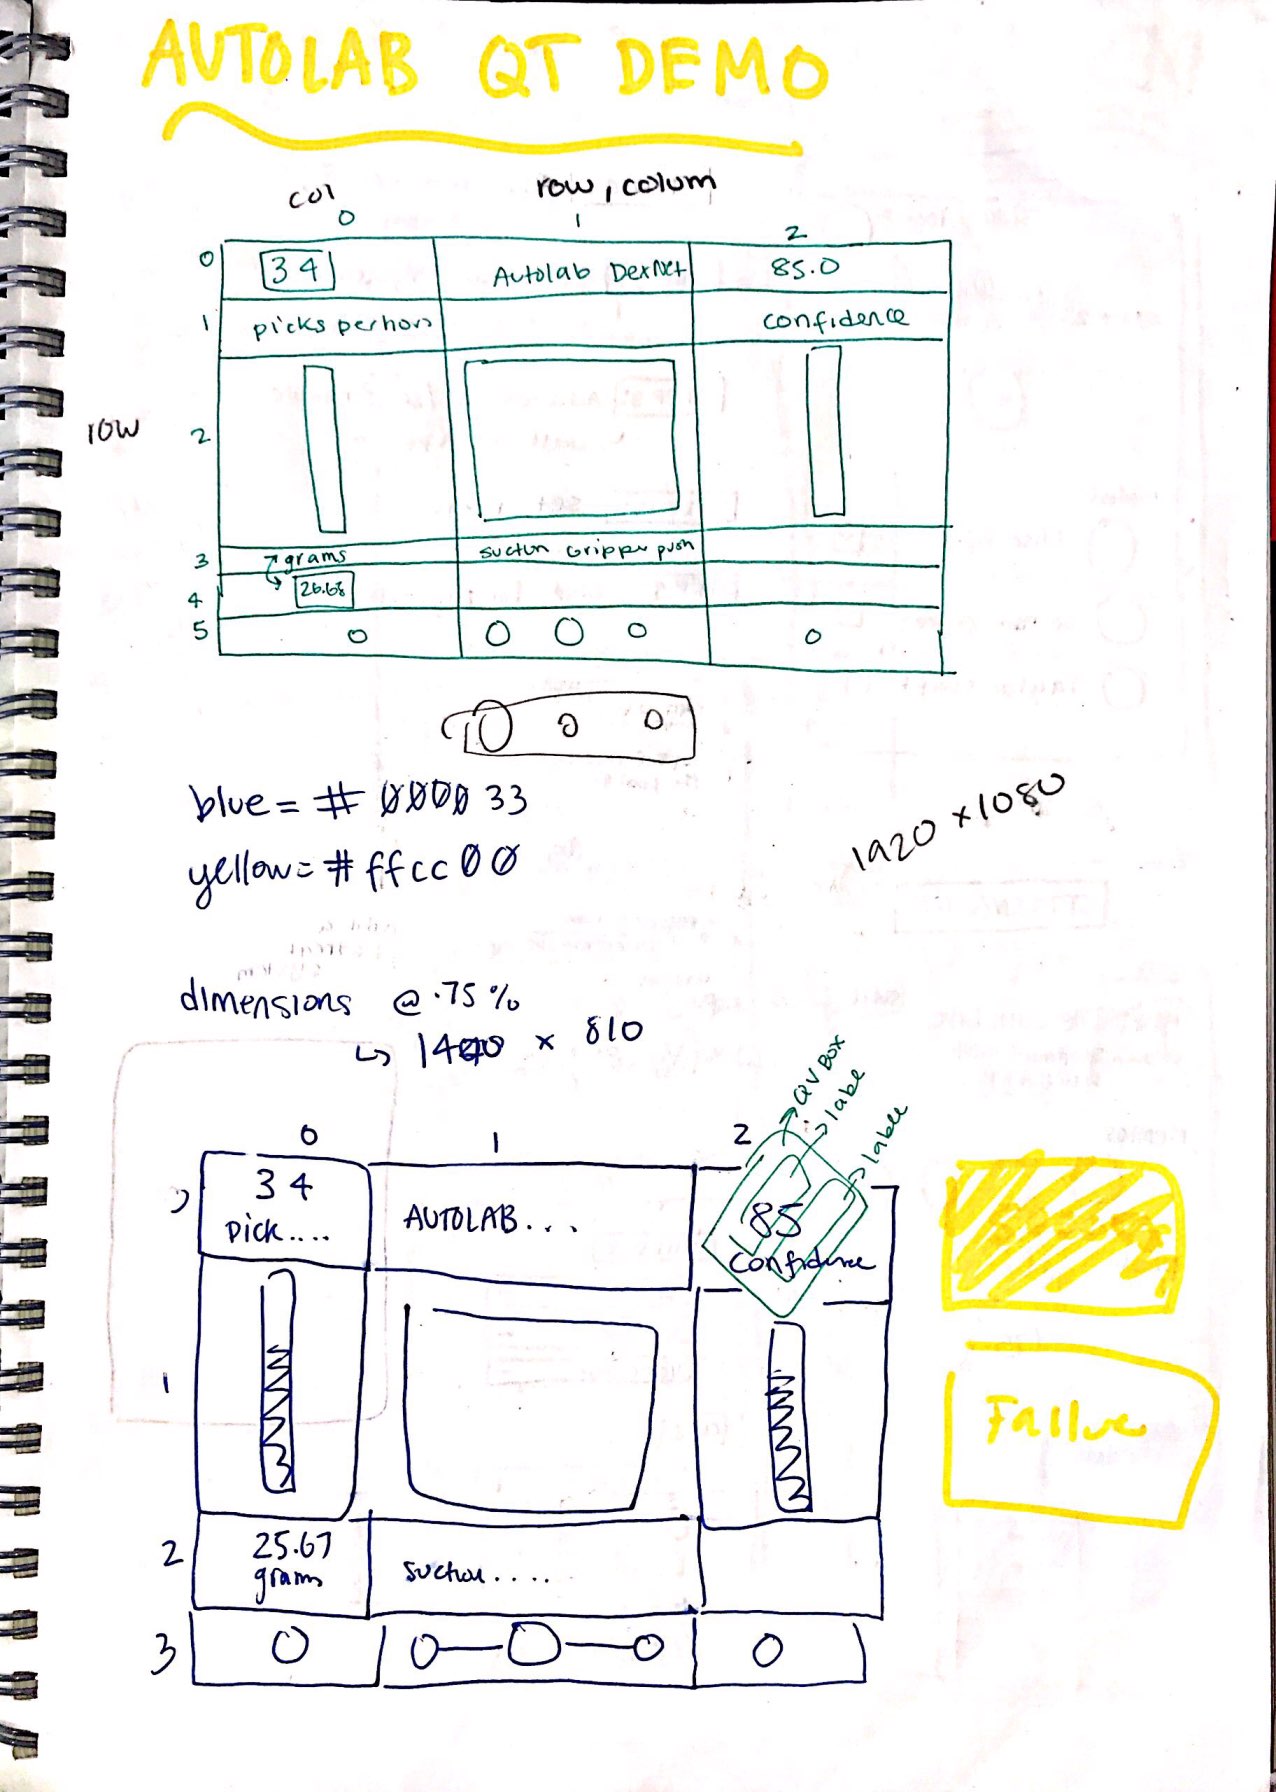 AUTOLAB QT DEMO
col row, colum
0 1 2
0 34 Autolab DexNet 85.0
1 picks perhour confidence
row
2
3 grams suction Gripper push
4 26.68
5
blue = # 000033
yellow = # ffcc00
1920 x 1080
dimensions @ .75%
↳ 1440 x 810
QV BOX
label
lablel
0 1 2
0 34 AUTOLAB... 85
pick.... Confidence
1 Failure
2 25.67 suction.....
grams
3